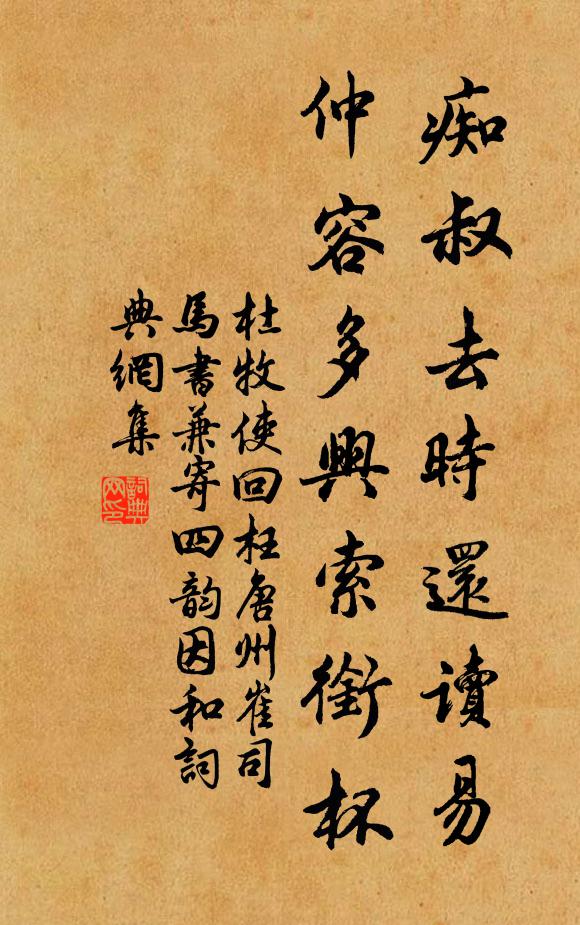 痴叔去時還讀易
仲容多興索銜杯
杜牧使回枉唐州崔司
馬書兼寄四韵因和詞
典網集
詞典
网印